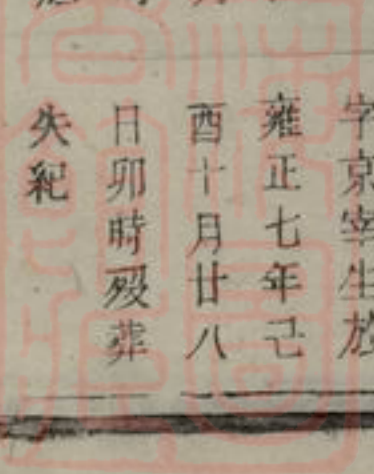 字京宰生於
雍正七年己
酉十月廿八
日卯時歿葬
失紀